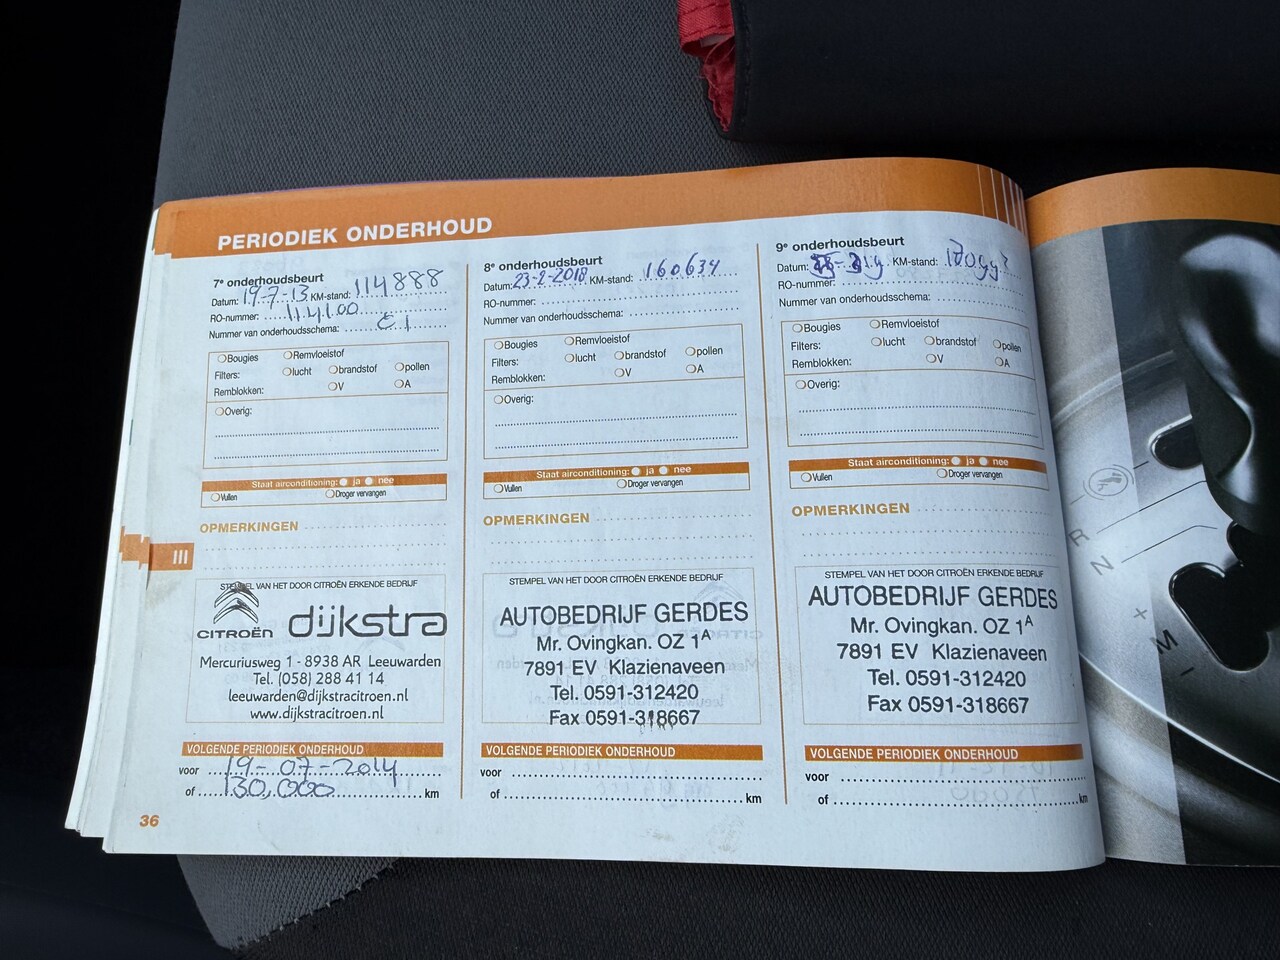 PERIODIEK ONDERHOUD
7e onderhoudsbeurt
Datum: 19-7-13 KM-stand: 114888
RO-nummer: 114100
Nummer van onderhoudsschema: C1
Bougies Remvloeistof
Filters: lucht brandstof pollen
Remblokken: V A
Overig:
Staat airconditioning: ja nee
Vullen Droger vervangen
OPMERKINGEN
STEMPEL VAN HET DOOR CITROËN ERKENDE BEDRIJF
CITROËN dijkstra
Mercuriusweg 1 - 8938 AR Leeuwarden
Tel. (058) 288 41 14
leeuwarden@dijkstracitroen.nl
www.dijkstracitroen.nl
VOLGENDE PERIODIEK ONDERHOUD
voor 19-07-2014
of 130.000 km
8e onderhoudsbeurt
Datum: 23-2-2018 KM-stand: 160634
RO-nummer:
Nummer van onderhoudsschema:
Bougies Remvloeistof
Filters: lucht brandstof pollen
Remblokken: V A
Overig:
Staat airconditioning: ja nee
Vullen Droger vervangen
OPMERKINGEN
STEMPEL VAN HET DOOR CITROËN ERKENDE BEDRIJF
AUTOBEDRIJF GERDES
Mr. Ovingkan. OZ 1A
7891 EV Klazienaveen
Tel. 0591-312420
Fax 0591-318667
VOLGENDE PERIODIEK ONDERHOUD
voor
of km
9e onderhoudsbeurt
Datum: KM-stand:
RO-nummer:
Nummer van onderhoudsschema:
Bougies Remvloeistof
Filters: lucht brandstof pollen
Remblokken: V A
Overig:
Staat airconditioning: ja nee
Vullen Droger vervangen
OPMERKINGEN
STEMPEL VAN HET DOOR CITROËN ERKENDE BEDRIJF
AUTOBEDRIJF GERDES
Mr. Ovingkan. OZ 1A
7891 EV Klazienaveen
Tel. 0591-312420
Fax 0591-318667
VOLGENDE PERIODIEK ONDERHOUD
voor
of km
III
36
R
N
+
M
-